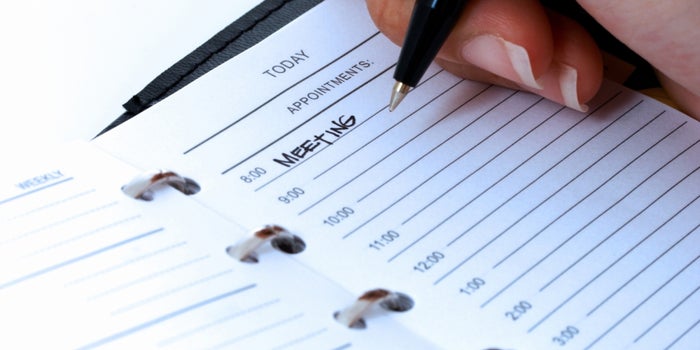 WEEKLY
TODAY
APPOINTMENTS:
8:00 MEETING
9:00
10:00
11:00
12:00
1:00
2:00
3:00